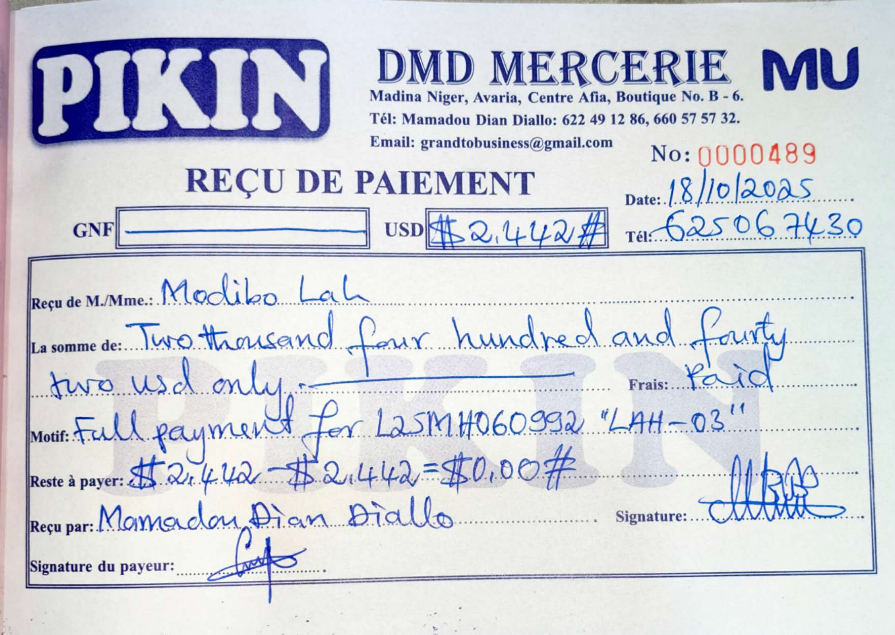 PIKIN
DMD MERCERIE
MU
Madina Niger, Avaria, Centre Afia, Boutique No. B - 6.
Tél: Mamadou Dian Diallo: 622 49 12 86, 660 57 57 32.
Email: grandtobusiness@gmail.com
No: 0000489
REÇU DE PAIEMENT
Date: 18/10/2025
GNF
USD $2.442#
Tél: 625067430
Reçu de M./Mme.: Modibo Lah
La somme de: Two thousand four hundred and fourty
two usd only.
Frais: Paid
Motif: Full payment for L25MH060992 "LAH-03"
Reste à payer: $2.442 - $2.442 = $0.00#
Reçu par: Mamadou Dian Diallo
Signature:
Signature du payeur:
PIKIN